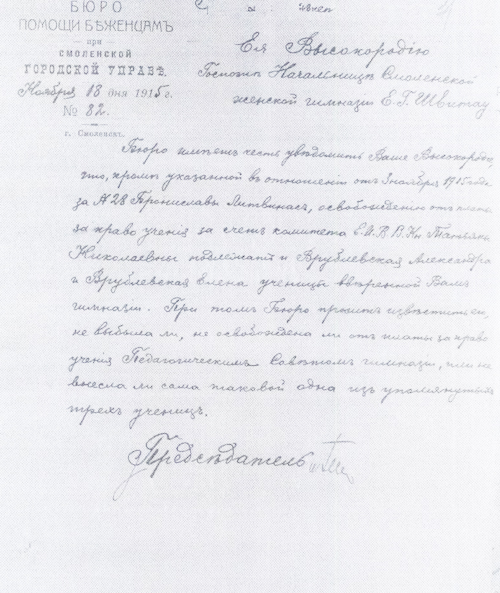 БЮРО
ПОМОЩИ БѢЖЕНЦАМЪ
при
СМОЛЕНСКОЙ
ГОРОДСКОЙ УПРАВѢ.
Ноября 18 дня 1915 г.
№ 82.
г. Смоленскъ.
Ея Высокородію
Госпожѣ Начальницѣ Смоленской
женской гимназіи Е. Г. Швытау
Бюро имѣетъ честь увѣдомить Ваше Высокородіе,
что, кромѣ указанной въ отношеніи отъ 3 ноября 1915 года
за № 28 Брониславы Литвинасъ, освобожденію отъ платы
за право ученія за счетъ комитета Е.И.В.В.Кн. Татьяны
Николаевны подлежатъ и Врублевская Александра
и Врублевская Елена ученицы ввѣренной Вамъ
гимназіи. При томъ Бюро проситъ извѣстить ея,
не выбыла ли, не освобождена ли отъ платы за право
ученія Педагогическимъ Совѣтомъ гимназіи, или не
внесла ли сама таковой одна изъ упомянутыхъ
трехъ ученицъ.
Предсѣдатель